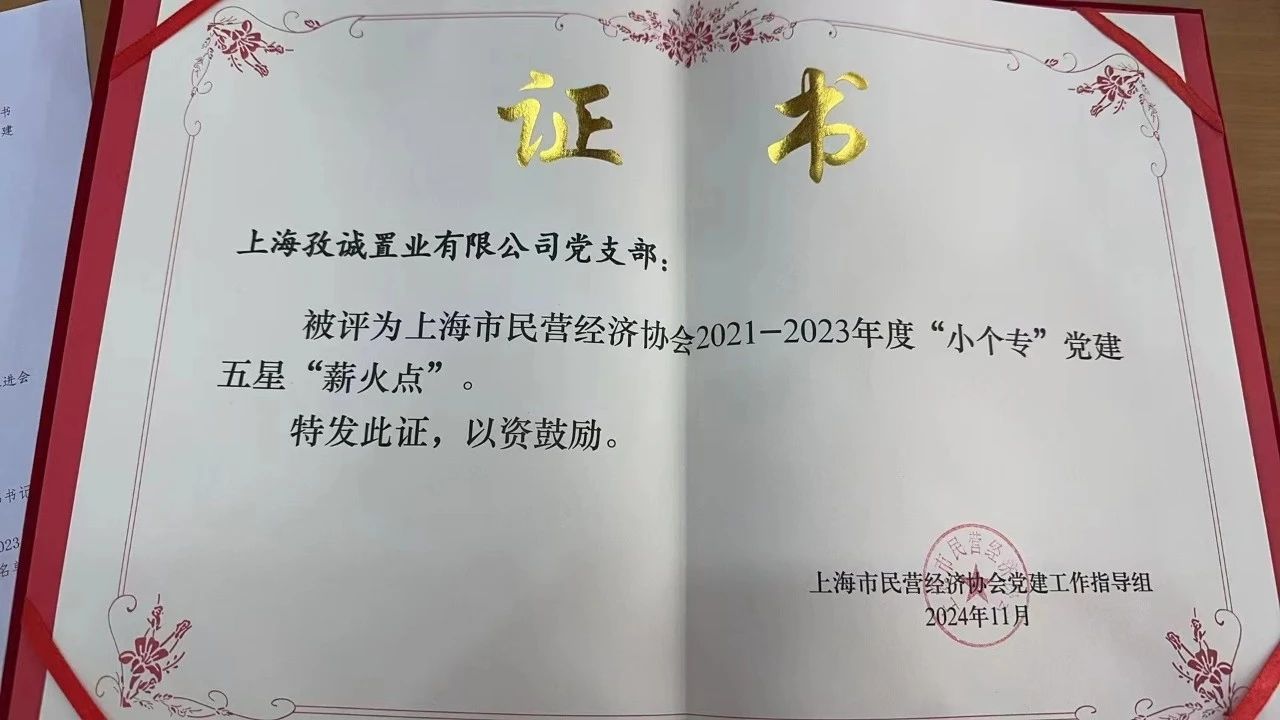 证书
上海孜诚置业有限公司党支部：
被评为上海市民营经济协会2021-2023年度“小个专”党建
五星“薪火点”。
特发此证，以资鼓励。
上海市民营经济协会党建工作指导组
2024年11月
市民营经济
书
建
进会
书记
023